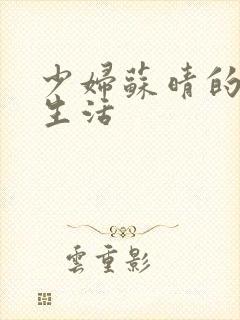 少婦蘇晴的
生活
雲重影